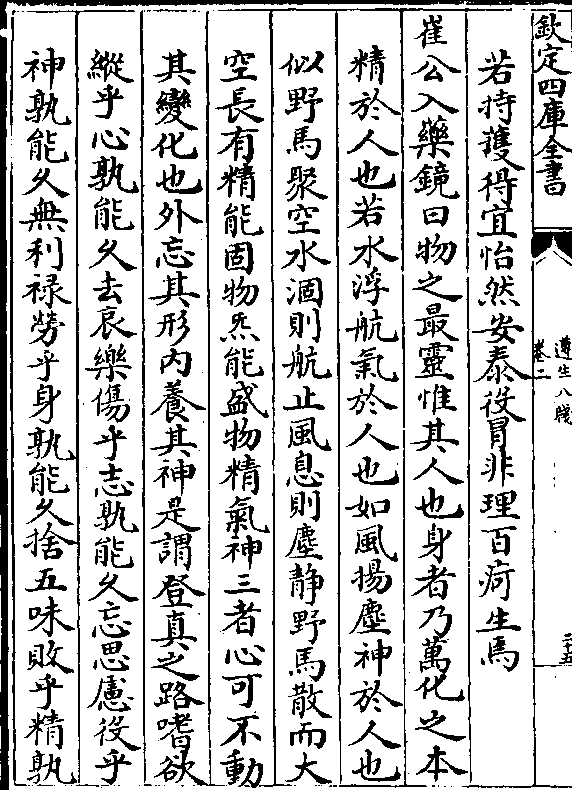 欽定四庫全書
遵生八牋
卷二
二十五
若持護得宜怡然安泰役冒非理百疴生焉
崔公入藥鏡曰物之最靈惟其人也身者乃萬化之本
精於人也若水浮航氣於人也如風揚塵神於人也
似野馬聚空水涸則航止風息則塵静野馬散而大
空長有精能固物炁能盛物精氣神三者心可不動
其變化也外忘其形内養其神是謂登真之路嗜欲
縱乎心孰能久去哀樂傷乎志孰能久忘思慮役乎
神孰能久無利禄勞乎身孰能久捨五味敗乎精孰